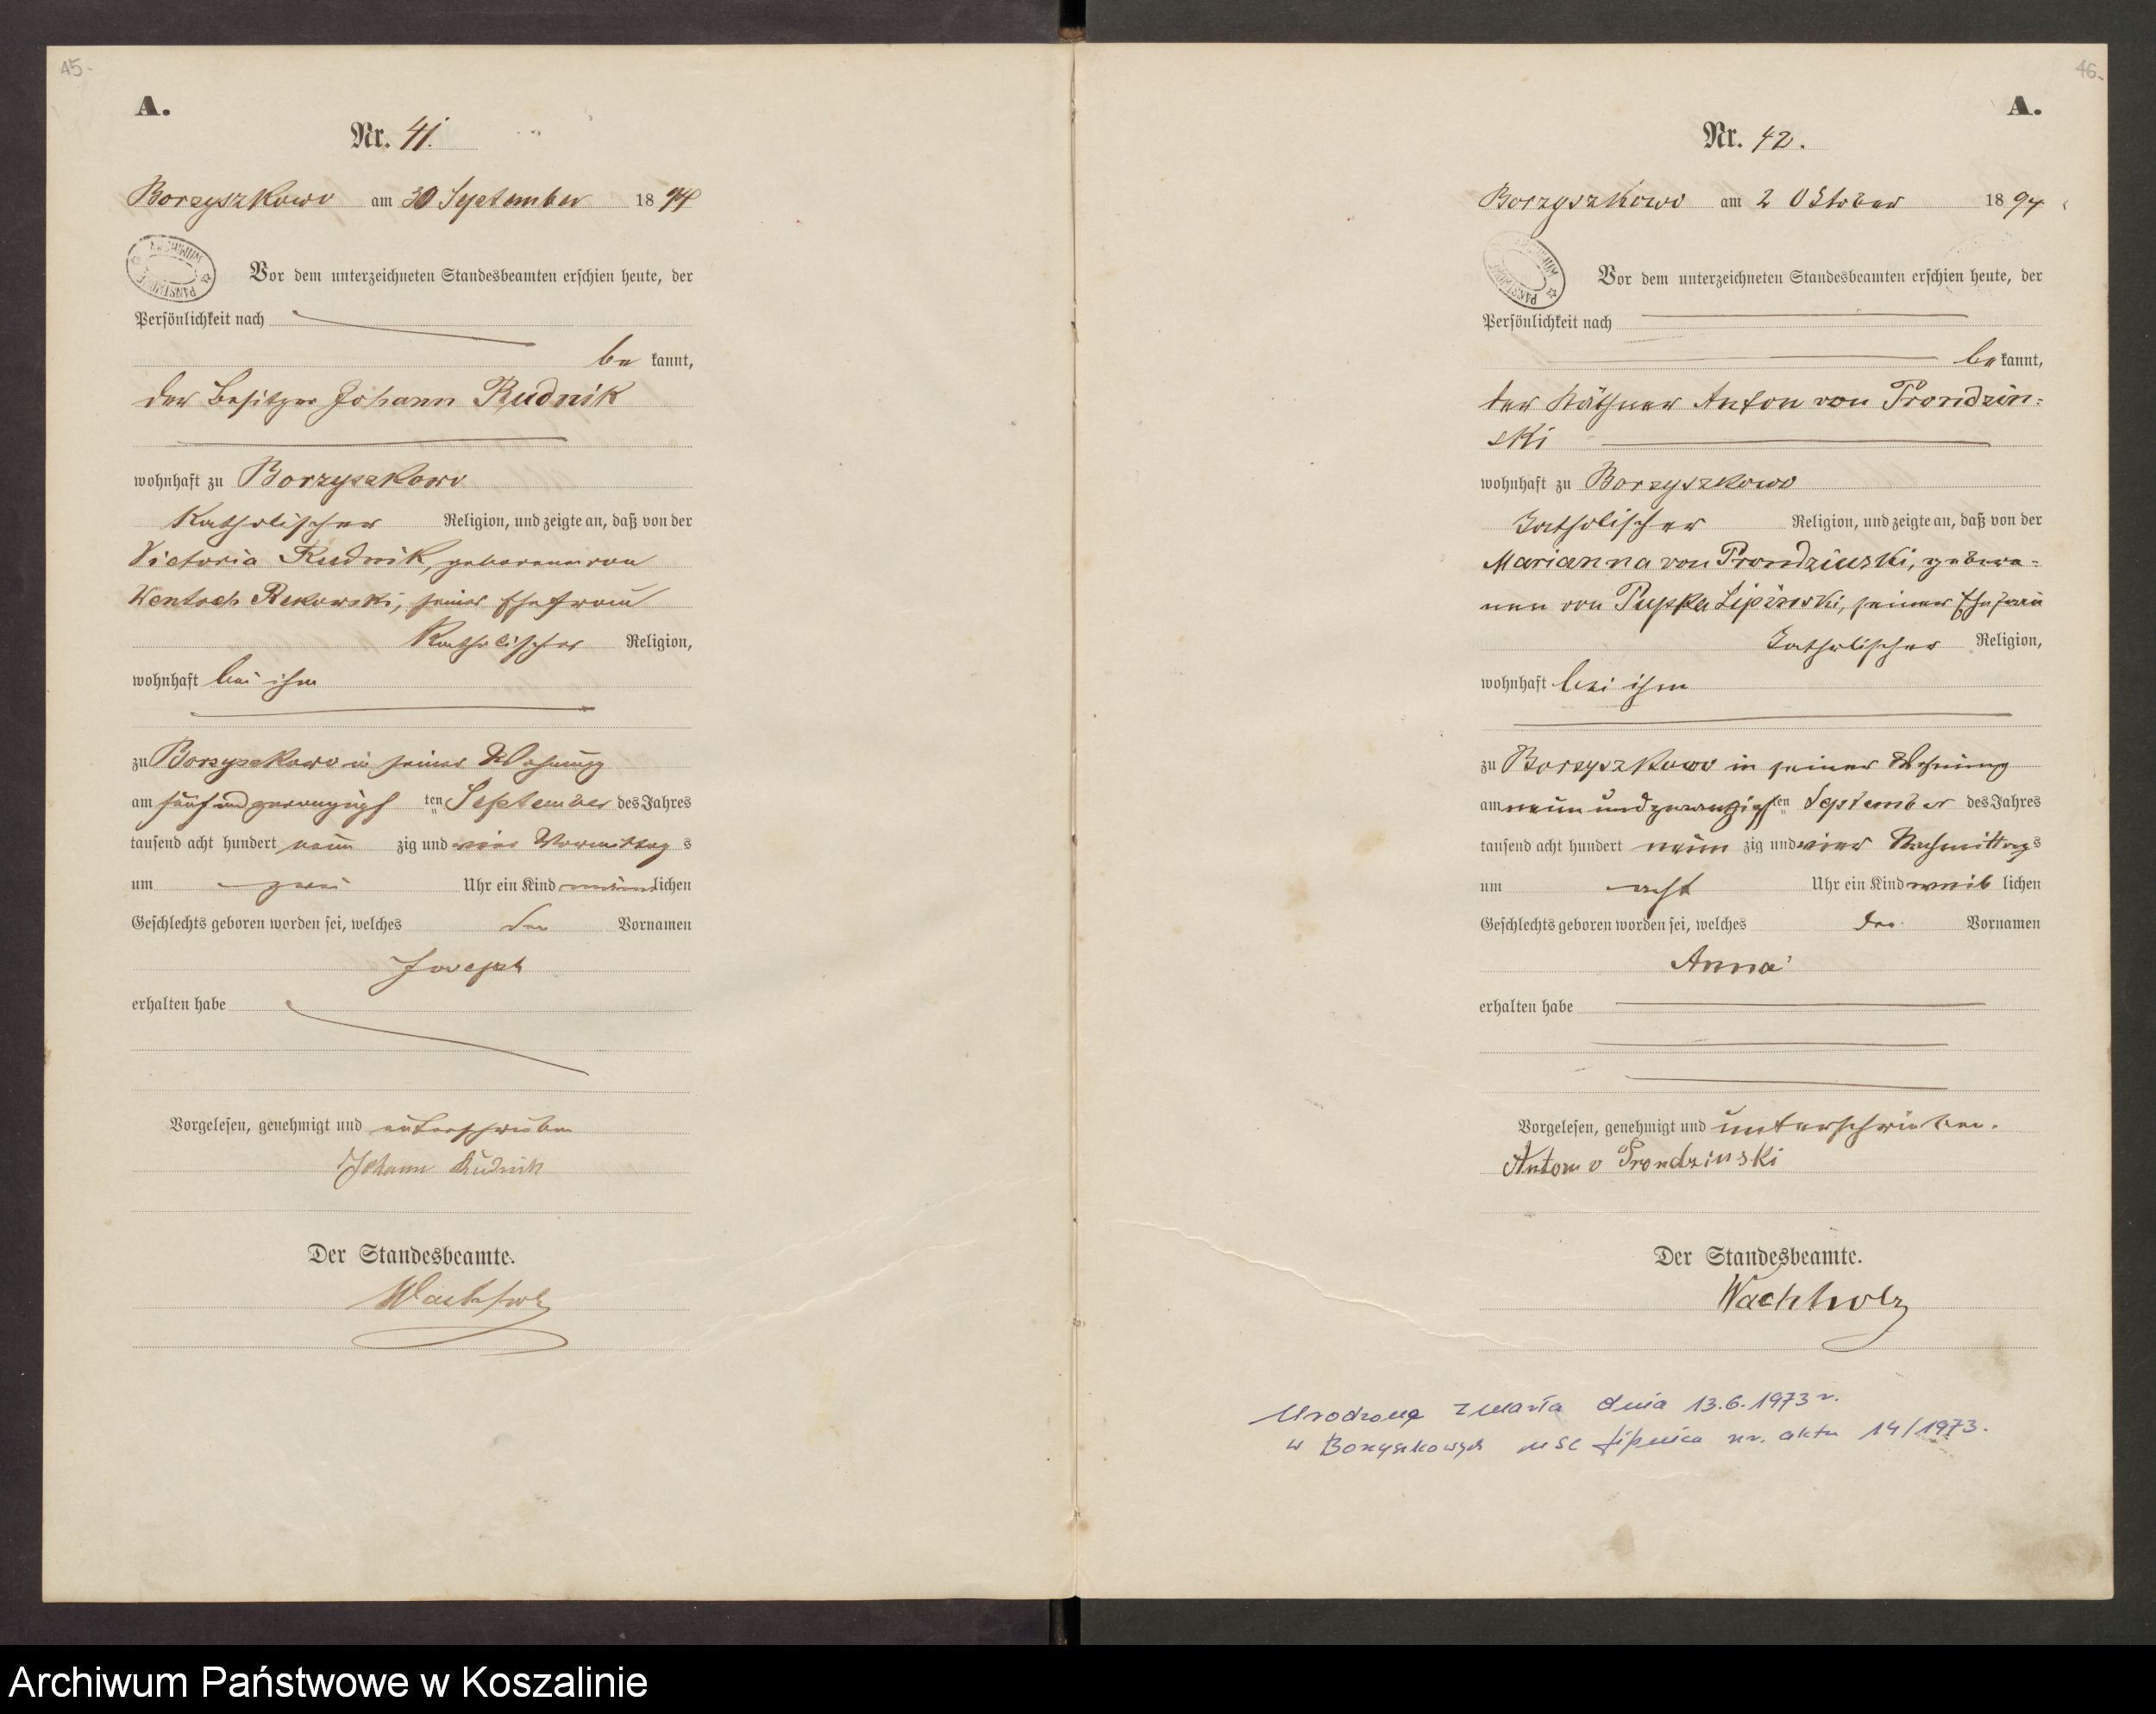 45.
A.
Nr. 41.
Borzyszkowo am 30 September 1894
ARCHIWUM PAŃSTWOWE
Vor dem unterzeichneten Standesbeamten erschien heute, der
Persönlichkeit nach
be kannt,
der Besitzer Johann Rudnik
wohnhaft zu Borzyszkowo
Katholischer Religion, und zeigte an, daß von der
Victoria Rudnik, geborenen von
Wentoch Rekowski, seiner Ehefrau
Katholischer Religion,
wohnhaft bei ihm
zu Borzyszkowo in seiner Wohnung
am fünf und zwanzigsten September des Jahres
tausend acht hundert neun zig und vier Vormittags
um zwei Uhr ein Kind männlichen
Geschlechts geboren worden sei, welches den Vornamen
Joseph
erhalten habe
Vorgelesen, genehmigt und unterschrieben
Johann Rudnik
Der Standesbeamte.
Wachholz
46.
A.
Nr. 42.
Borzyszkowo am 2 Oktober 1894
ARCHIWUM PAŃSTWOWE
Vor dem unterzeichneten Standesbeamten erschien heute, der
Persönlichkeit nach
be kannt,
der Käthner Anton von Prondzin=
ski
wohnhaft zu Borzyszkowo
katholischer Religion, und zeigte an, daß von der
Marianna von Prondzinski, gebore=
nen von Pupka Lipinski, seiner Ehefrau
katholischer Religion,
wohnhaft bei ihm
zu Borzyszkowo in seiner Wohnung
am neun und zwanzigsten September des Jahres
tausend acht hundert neun zig und vier Nachmittags
um acht Uhr ein Kind weib lichen
Geschlechts geboren worden sei, welches den Vornamen
Anna
erhalten habe
Vorgelesen, genehmigt und unterschrieben.
Anton v Prondzinski
Der Standesbeamte.
Wachholz
Urodzona zmarła dnia 13.6.1973 r.
w Borzyszkowych USC Lipnica nr. aktu 14/1973.
Archiwum Państwowe w Koszalinie